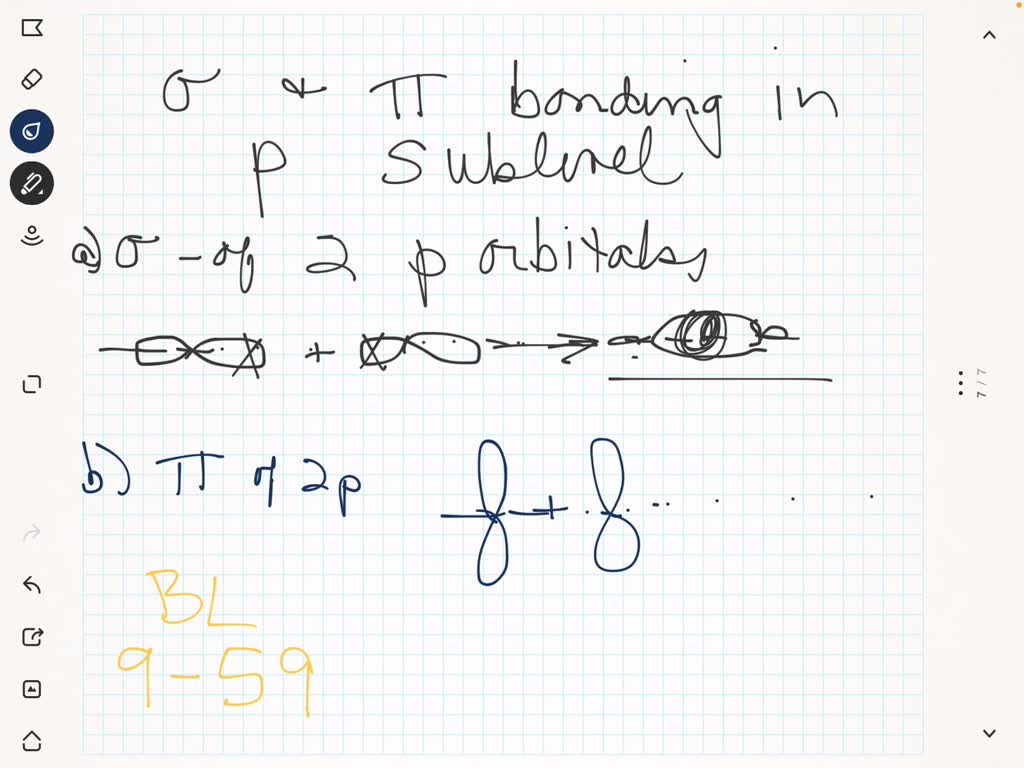 σ & π bonding in
p sublevel
a) σ - of 2 p orbitals
+
b) π of 2p
+
BL
9-59
7 / 7